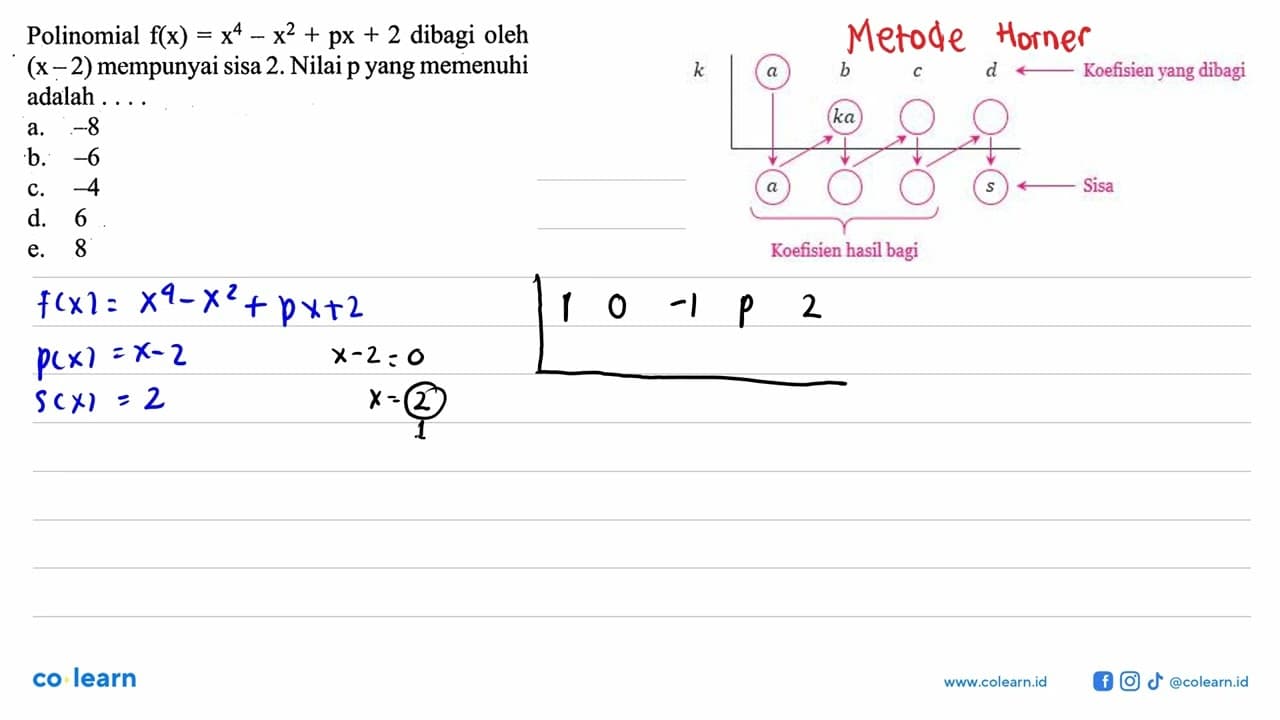 Polinomial f(x) = x⁴ – x² + px + 2 dibagi oleh
(x – 2) mempunyai sisa 2. Nilai p yang memenuhi
adalah . . . .
a. –8
b. –6
c. –4
d. 6
e. 8
Metode Horner
k a b c d Koefisien yang dibagi
ka
a s Sisa
Koefisien hasil bagi
f(x) = x⁴ - x² + px + 2
p(x) = x - 2
s(x) = 2
x - 2 = 0
x = 2
1
1 0 -1 p 2
co learn
www.colearn.id
@colearn.id